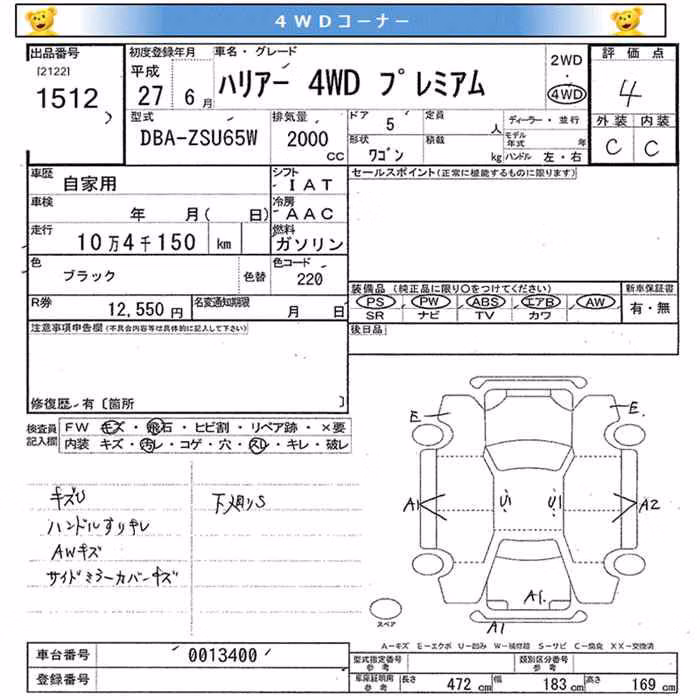 4WDコーナー
出品番号
[2122]
1512
初度登録年月
平成
27 6月
車名・グレード
ハリアー 4WD プレミアム
2WD
・
4WD
評価点
4
外装 内装
C C
型式
DBA-ZSU65W
排気量
2000
CC
ドア 5
定員 人
形状
ワゴン
積載 kg
ディーラー・並行
モデル年式 年
ハンドル 左・右
車歴
自家用
シフト
IAT
車検
年 月( 日)
冷房
AAC
走行
10万4千150 km
燃料
ガソリン
色
ブラック
色替
色コード
220
R券
12,550円
名変通知期限
月 日
セールスポイント(正常に機能するものに限ります)
装備品(純正品に限り○をつけてください)
PS PW ABS エアB AW
SR ナビ TV カワ
新車保証書
有・無
後日品
注意事項申告欄(不具合内容等は具体的に記入して下さい)
修復歴・有〔箇所 〕
検査員
記入欄
FW キズ・飛石・ヒビ割・リペア跡・×要
内装 キズ・汚レ・コゲ・穴・スレ・キレ・破レ
キズU
ハンドルすりキレ
AWキズ
サイドミラーカバーキズ
下廻りS
E
E
A1
U1
U1
A2
A1
A1
スペア
A-キズ E-エクボ U-凹み W-補修跡 S-サビ C-腐食 XX-交換済
車台番号
0013400
登録番号
型式指定番号
参考
類別区分番号
参考
車庫証明用
参考
長さ 472cm 幅 183cm 高さ 169cm